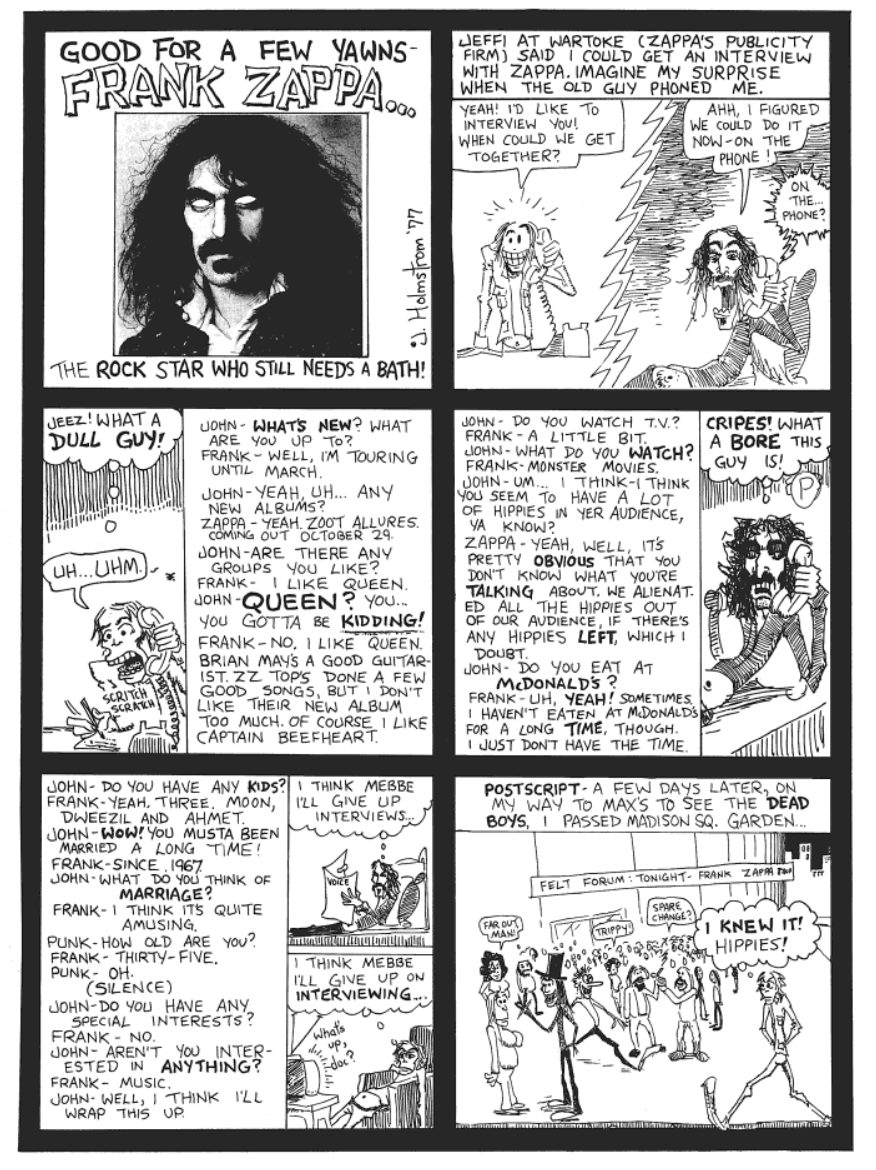 GOOD FOR A FEW YAWNS-
FRANK ZAPPA...
J. Holmstrom '77
THE ROCK STAR WHO STILL NEEDS A BATH!
JEFFI AT WARTOKE (ZAPPA'S PUBLICITY
FIRM) SAID I COULD GET AN INTERVIEW
WITH ZAPPA. IMAGINE MY SURPRISE
WHEN THE OLD GUY PHONED ME.
YEAH! I'D LIKE TO
INTERVIEW YOU!
WHEN COULD WE GET
TOGETHER?
AHH, I FIGURED
WE COULD DO IT
NOW-ON THE
PHONE!
ON
THE...
PHONE?
JEEZ! WHAT A
DULL GUY!
UH...UHM.
SCRITCH
SCRATCH
JOHN- WHAT'S NEW? WHAT
ARE YOU UP TO?
FRANK- WELL, I'M TOURING
UNTIL MARCH.
JOHN-YEAH, UH... ANY
NEW ALBUMS?
ZAPPA-YEAH. ZOOT ALLURES.
COMING OUT OCTOBER 29.
JOHN-ARE THERE ANY
GROUPS YOU LIKE?
FRANK- I LIKE QUEEN.
JOHN-QUEEN? YOU...
YOU GOTTA BE KIDDING!
FRANK-NO, I LIKE QUEEN.
BRIAN MAY'S A GOOD GUITAR-
IST. ZZ TOP'S DONE A FEW
GOOD SONGS, BUT I DON'T
LIKE THEIR NEW ALBUM
TOO MUCH. OF COURSE I LIKE
CAPTAIN BEEFHEART.
JOHN- DO YOU WATCH T.V.?
FRANK- A LITTLE BIT.
JOHN-WHAT DO YOU WATCH?
FRANK-MONSTER MOVIES.
JOHN-UM... I THINK-I THINK
YOU SEEM TO HAVE A LOT
OF HIPPIES IN YER AUDIENCE,
YA KNOW?
ZAPPA-YEAH, WELL, IT'S
PRETTY OBVIOUS THAT YOU
DON'T KNOW WHAT YOU'RE
TALKING ABOUT. WE ALIENAT-
ED ALL THE HIPPIES OUT
OF OUR AUDIENCE, IF THERE'S
ANY HIPPIES LEFT, WHICH I
DOUBT.
JOHN- DO YOU EAT AT
McDONALD'S?
FRANK-UH, YEAH! SOMETIMES.
I HAVEN'T EATEN AT McDONALD'S
FOR A LONG TIME, THOUGH.
I JUST DON'T HAVE THE TIME.
CRIPES! WHAT
A BORE THIS
GUY IS!
P
JOHN- DO YOU HAVE ANY KIDS?
FRANK-YEAH. THREE. MOON,
DWEEZIL AND AHMET.
JOHN-WOW! YOU MUSTA BEEN
MARRIED A LONG TIME!
FRANK-SINCE 1967.
JOHN-WHAT DO YOU THINK OF
MARRIAGE?
FRANK- I THINK IT'S QUITE
AMUSING.
PUNK-HOW OLD ARE YOU?
FRANK- THIRTY-FIVE.
PUNK- OH.
(SILENCE)
JOHN-DO YOU HAVE ANY
SPECIAL INTERESTS?
FRANK- NO.
JOHN- AREN'T YOU INTER-
ESTED IN ANYTHING?
FRANK- MUSIC.
JOHN-WELL, I THINK I'LL
WRAP THIS UP.
I THINK MEBBE
I'LL GIVE UP
INTERVIEWS...
VOICE
I THINK MEBBE
I'LL GIVE UP ON
INTERVIEWING...
What's
up,
doc?
POSTSCRIPT- A FEW DAYS LATER, ON
MY WAY TO MAX'S TO SEE THE DEAD
BOYS, I PASSED MADISON SQ. GARDEN...
FELT FORUM: TONIGHT- FRANK ZAPPA
FAR OUT,
MAN!
TRIPPY!
SPARE
CHANGE?
I KNEW IT!
HIPPIES!